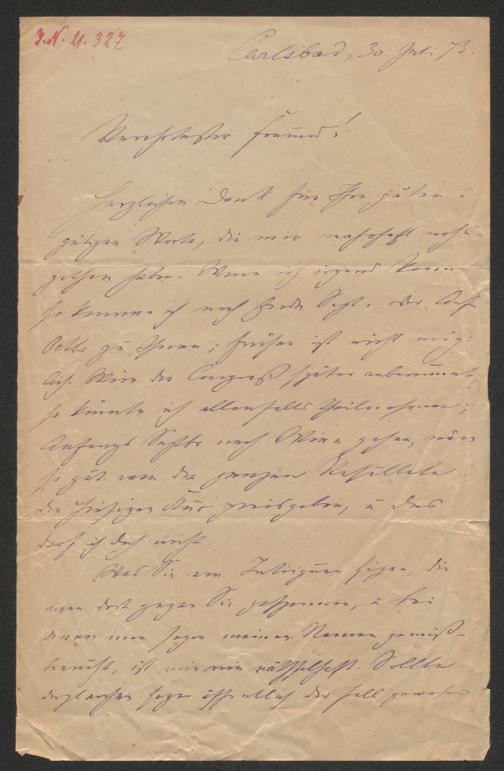 J.N. 21.327
Carlsbad, 30. Juli 73.
Verehrtester Freund!
Herzlichen Dank für Ihre guten &
gütigen Worte, die mir wahrhaft wohl-
gethan haben. Wenn ich irgend kann
so komme ich noch Ende Sept. oder Anf.
Octbr zu Ihnen; früher ist nicht mög-
lich. Wäre der Congreß später anberaumt
so könnte ich allenfalls theilnehmen;
Anfangs Septbr nach Wien gehen, wäre
so gut wie die ganzen Resultate
der hiesigen Kur preisgeben, u das
darf ich doch nicht.
Was Sie von Intriguen sagen, die
man dort gegen Sie gesponnen, u bei
denen man sogar meinen Namen gemiß-
braucht, ist mir räthselhaft. Sollte
dergleichen sogar öffentlich der Fall gewesen